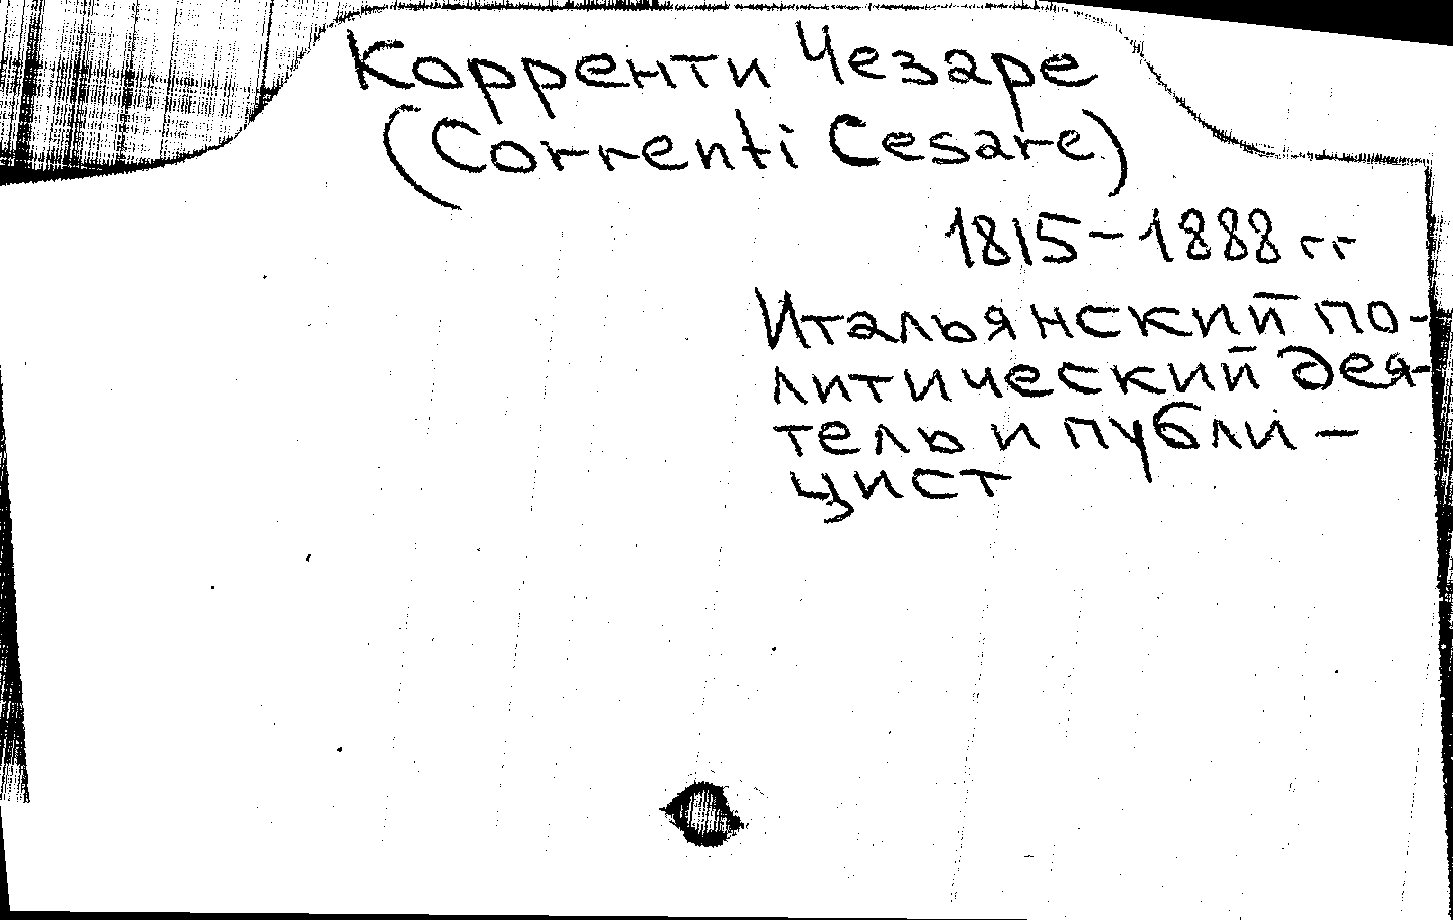 Корренти Чезаре
(Correnti Cesare)
1815-1888 гг
Итальянский по-
литический дея-
тель и публи-
цист